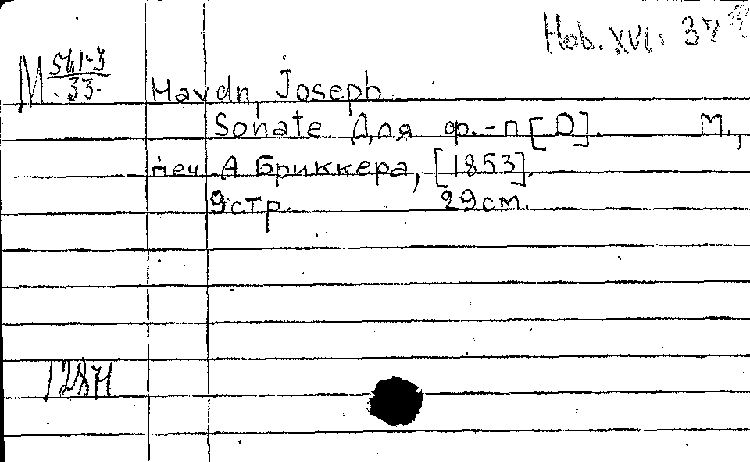 Hob. XVI. 37
M 561-3
33
Haydn, Joseph.
Sonate Для ф.-п [D]. М.,
печ А Бриккера, [1853].
9стр. 29cm.